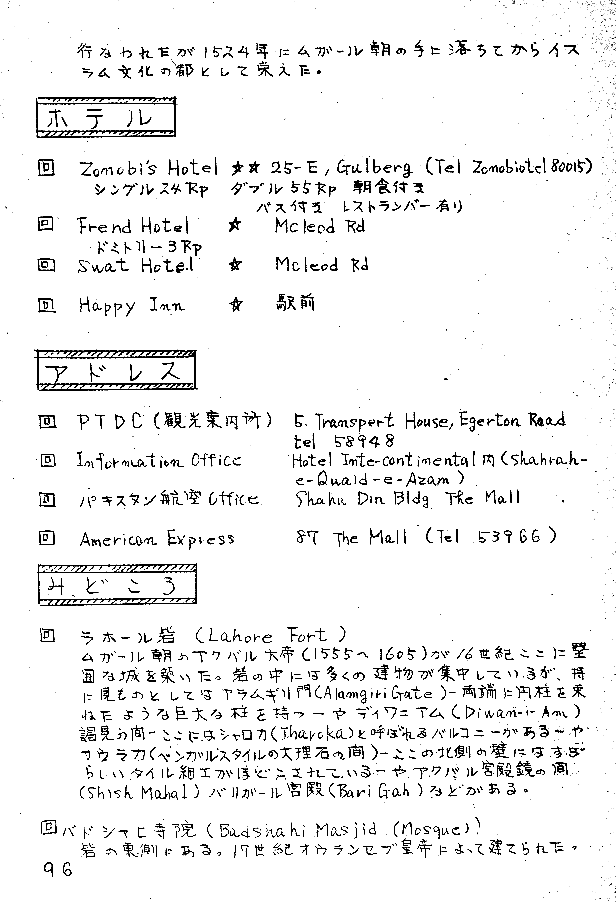 行なわれたが1524年にムガール朝の手に落ちてからイス
ラム文化の都として栄えた。
ホテル
回 Zomobi's Hotel ★★ 25-E, Gulberg (Tel Zomobiotel 80015)
シングル24Rp ダブル55Rp 朝食付き
バス付き レストランバー有り
回 Frend Hotel ★ Mcleod Rd
ドミトリー3Rp
回 Swat Hotel ★ Mcleod Rd
回 Happy Inn ★ 駅前
アドレス
回 PTDC (観光案内所) 5. Transport House, Egerton Road
tel 58948
回 Information Office Hotel Inte-contimental内 (Shahrah-
e-Quaid-e-Azam)
回 パキスタン航空Office Shahu Din Bldg The Mall
回 American Express 87 The Mall (Tel 53966)
みどころ
回 ラホール砦 (Lahore Fort)
ムガール朝のアクバル大帝(1555〜1605)が16世紀ここに堅
固な城を築いた。砦の中には多くの建物が集中しているが、特
に見ものとしてはアラムギリ門(Alamgiri Gate)-両端に円柱を束
ねたような巨大な柱を持つ-やディワニアム(Diwan-i-Am)
謁見の間-ここにはジャロカ(Jharoka)と呼ばれるバルコニーがある-や
ナウラカ(ベンガルスタイルの大理石の間)-ここの北側の壁にはすば
らしいタイル細工がほどこされている-や、アクバル宮殿鏡の間
(Shish Mahal) バリガール宮殿(Bari Gah)などがある。
回 バドシャヒ寺院 (Badshahi Masjid (Mosque))
砦の東側にある。17世紀オウランゼブ皇帝によって建てられた。
96